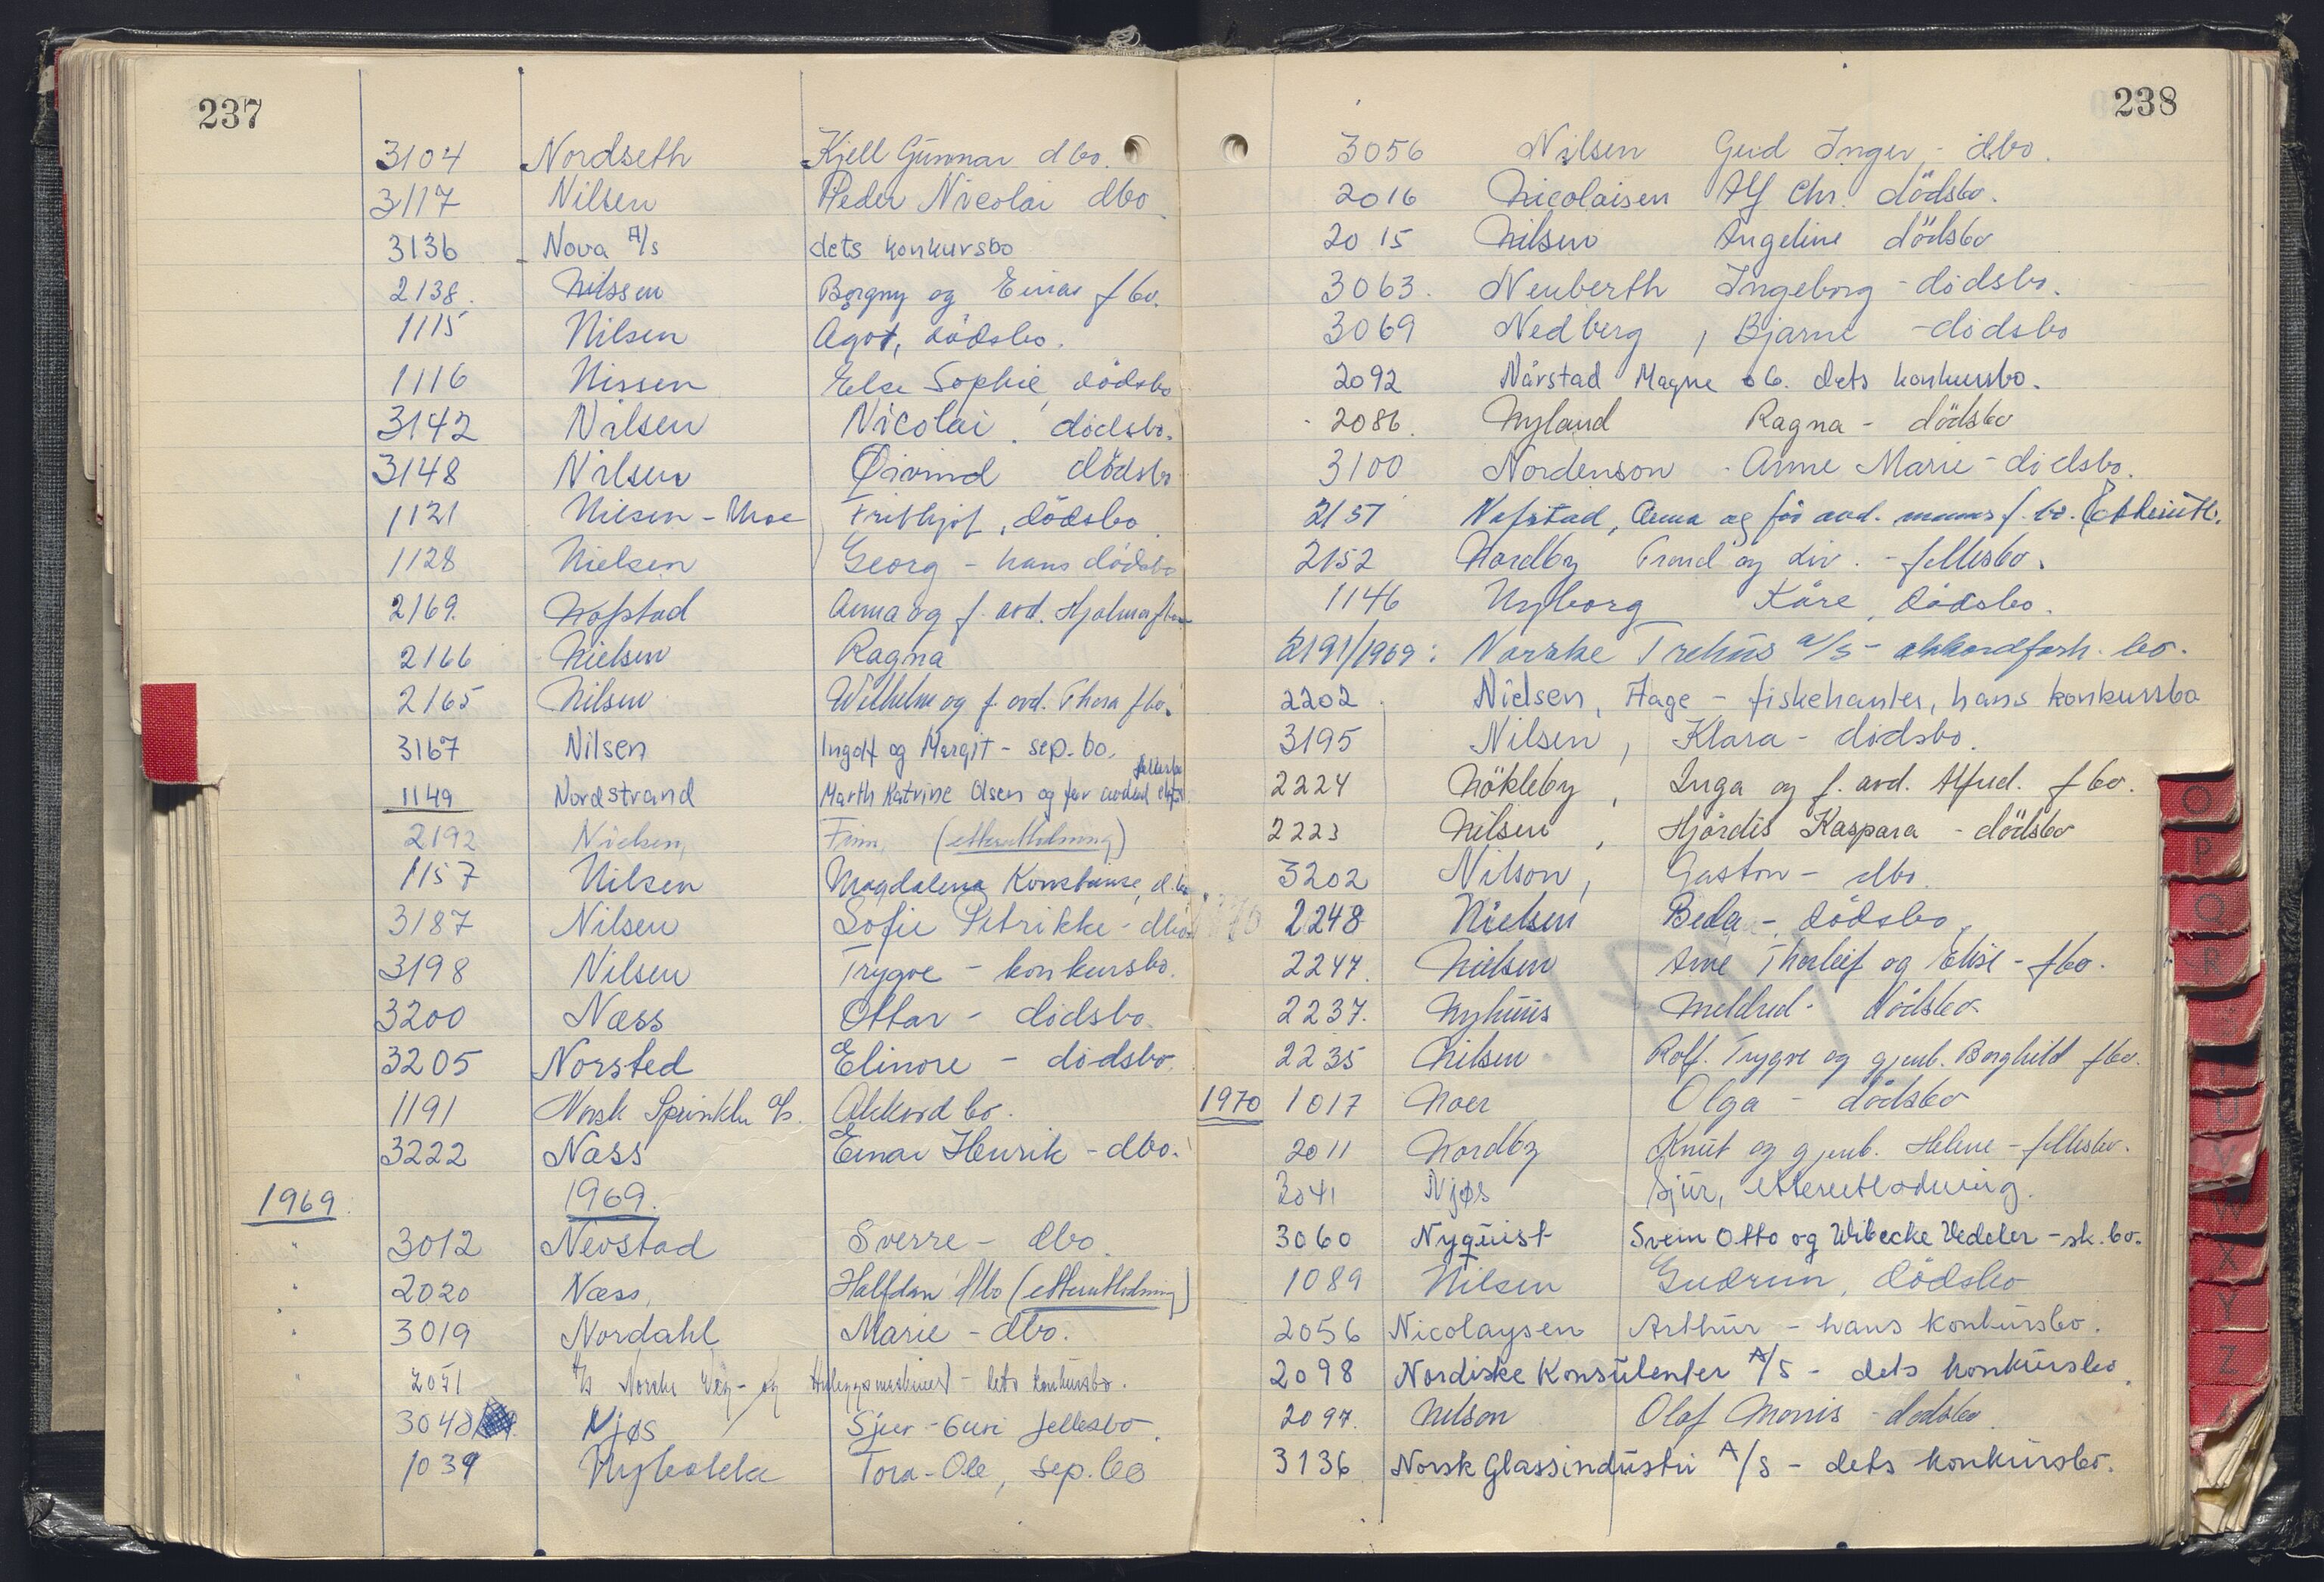 237
3104 Nordseth Kjell Gunnar dbo.
3117 Nilsen Peder Nicolai dbo
3136 Nova A/s dets konkursbo
2138. Nilssen Borgny og Einar f bo.
1115 Nilsen Agot, dödsbo.
1116 Nissen Else Sophie, dödsbo
3142 Nilsen Nicolai. dödsbo.
3148 Nilsen Øivind dödsbo
1121 Nilsen-Moe Frithjof, dödsbo
1128 Nielsen Georg - hans dödsbo
2169. Nafstad Anna og f. avd. Hjalmar
2166 Nielsen Ragna
2165 Nilsen Wilhelm og f. avd. Thora fbo.
3167 Nilsen Ingolf og Margit - sep. bo.
1149 Nordstrand Marth Katrine Olsen og før avdød fellesbo
2192 Nielsen, Finn, (etterutlodning)
1157 Nilsen Magdalena Konstanse, d.bo
3187 Nilsen Sofie Petrikke - dbo
3198 Nilsen Trygve - konkursbo.
3200 Næss Ottar - dödsbo.
3205 Norsted Elinore - dödsbo.
1191 Norsk Sprinkler A/s. Akkord bo.
3222 Næss Einar Henrik - dbo.
1969 1969.
" 3012 Nevstad Sverre - dbo.
" 2020 Næss, Halfdan dbo (etterutlodning)
" 3019 Nordahl Marie - dbo.
" 2051 A/s Norske Veg- og Anleggsmaskiner - dets konkursbo.
3048 Njøs Sjur - Guri fellesbo.
1039 Nybakka Tora-Ole, sep. bo
238
3056 Nilsen Gud Inger, - dbo.
2016 Nicolaisen Alf Chr. dödsbo.
2015 Nilsen Angeline dödsbo
3063. Neuberth Ingeborg - dödsbo.
3069 Nedberg, Bjarne - dödsbo
2092 Nårstad Magne & Co. dets konkursbo.
2086. Nyland Ragna - dödsbo
3100 Nordenson Anne Marie - dödsbo.
2151 Nafstad, Anna og før avd. manns f. bo.
2152 Nordby Trond og Liv. - fellesbo.
1146 Nyborg Kåre, dödsbo.
2191/1969: Norske Trehus a/s - akkordforh. bo.
2202 Nielsen, Hage - fiskehandler, hans konkursbo
3195 Nilsen, Klara - dödsbo.
2224 Nökleby, Inga og f. avd. Alfred. f bo.
2223 Nilsen, Hjördis Kaspara - dödsbo
3202 Nilson, Gaston - dbo.
2248 Nielsen Beda - dödsbo,
2247. Nielsen Arne Thorleif og Elise - fbo.
2237. Nyhuus Meldred - dödsbo
2235 Nilsen Rolf. Trygve og gjenl. Borghild fbo.
1970 1017 Noer Olga - dödsbo
2011 Nordby Knut og gjenl. Helene - fellesbo.
2041 Njøs Sjur, etterutlodning.
3060 Nyquist Svein Otto og Wibecke Vedeler - sk. bo.
1089 Nilsen Gudrun, dödsbo
2056 Nicolaysen Arthur - hans konkursbo.
2098 Nordiske Konsulenter A/S - dets konkursbo.
2097. Nilson Olaf Morris - dödsbo.
3136 Norsk Glassindustri A/S - dets konkursbo.
O
P
Q
R
T
U
V
W
X
Y
Z